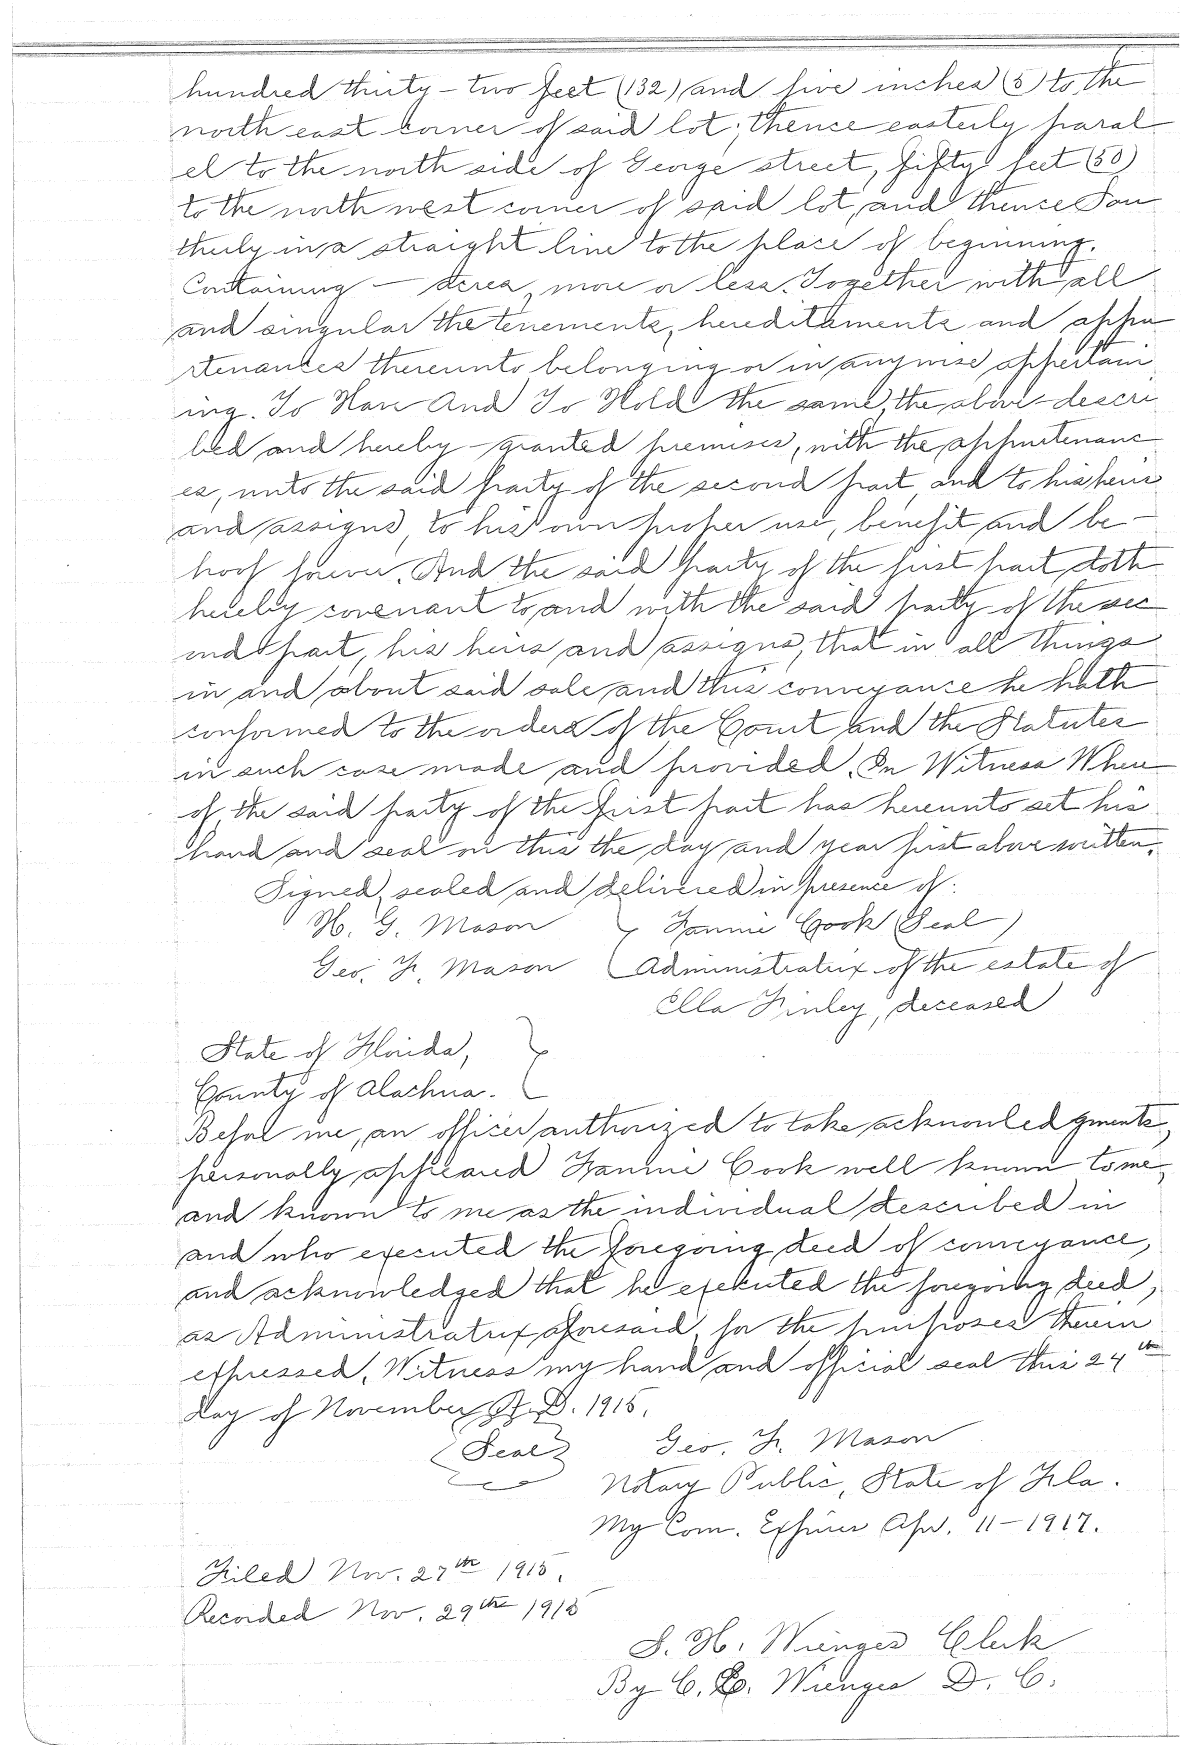 hundred thirty-two feet (132) and five inches (5) to the
north east corner of said lot; thence easterly paral
el to the north side of George street, fifty feet (50)
to the north west corner of said lot, and thence Sou
therly in a straight line to the place of beginning.
Containing — acres, more or less. Together with all
and singular the tenements, hereditaments and appu
rtenances thereunto belonging or in anywise appertain
ing. To Have And To Hold the same, the above-descri
bed and hereby granted premises, with the appurtenanc
es, unto the said party of the second part, and to his heirs
and assigns, to his own proper use, benefit and be-
hoof forever. And the said party of the first part doth
hereby covenant to and with the said party of the sec
ond part, his heirs and assigns, that in all things
in and about said sale and this conveyance he hath
conformed to the orders of the Court and the Statutes
in such case made and provided. In Witness Where
of, the said party of the first part has hereunto set his
hand and seal on this the day and year first above written.
Signed, sealed and delivered in presence of:
H. G. Mason } Fannie Cook (Seal)
Geo. F. Mason Administratrix of the estate of
Ella Finley, deceased
State of Florida, }
County of Alachua.
Before me, an officer authorized to take acknowledgments,
personally appeared Fannie Cook well known to me,
and known to me as the individual described in
and who executed the foregoing deed of conveyance,
and acknowledged that he executed the foregoing deed,
as Administratrix aforesaid, for the purposes therein
expressed. Witness my hand and official seal this 24th
day of November A.D. 1915.
{Seal} Geo. F. Mason
Notary Public, State of Fla.
My Com. Expires Apr. 11-1917.
Filed Nov. 27th 1915.
Recorded Nov. 29th 1915
S. H. Wienges Clerk
By C. C. Wienges D. C.